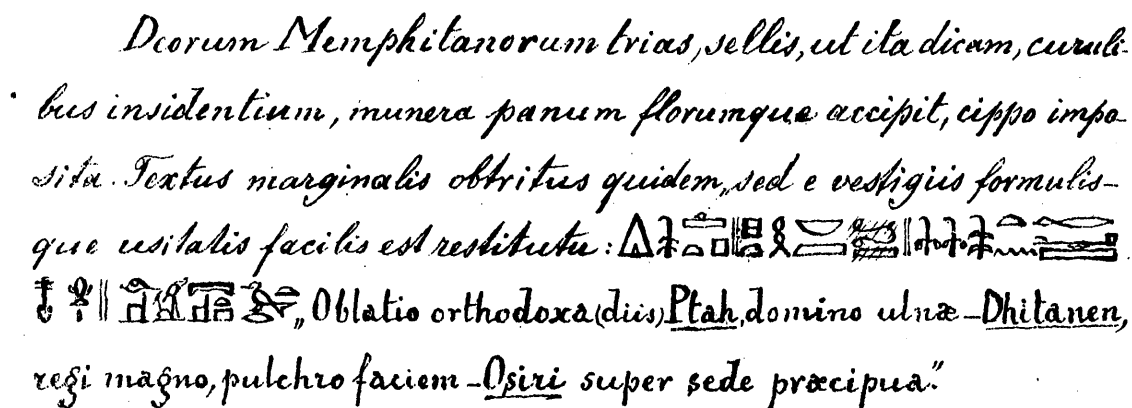 Deorum Memphitanorum trias, sellis, ut ita dicam, curuli-
bus insidentium, munera panum florumque accipit, cippo impo-
sita. Textus marginalis obtritus quidem, sed e vestigiis formulis-
que usitatis facilis est restitutu:
„Oblatio orthodoxa (diis) Ptah, domino ulnæ – Dhitanen,
regi magno, pulchro faciem – Osiri super sede præcipua."